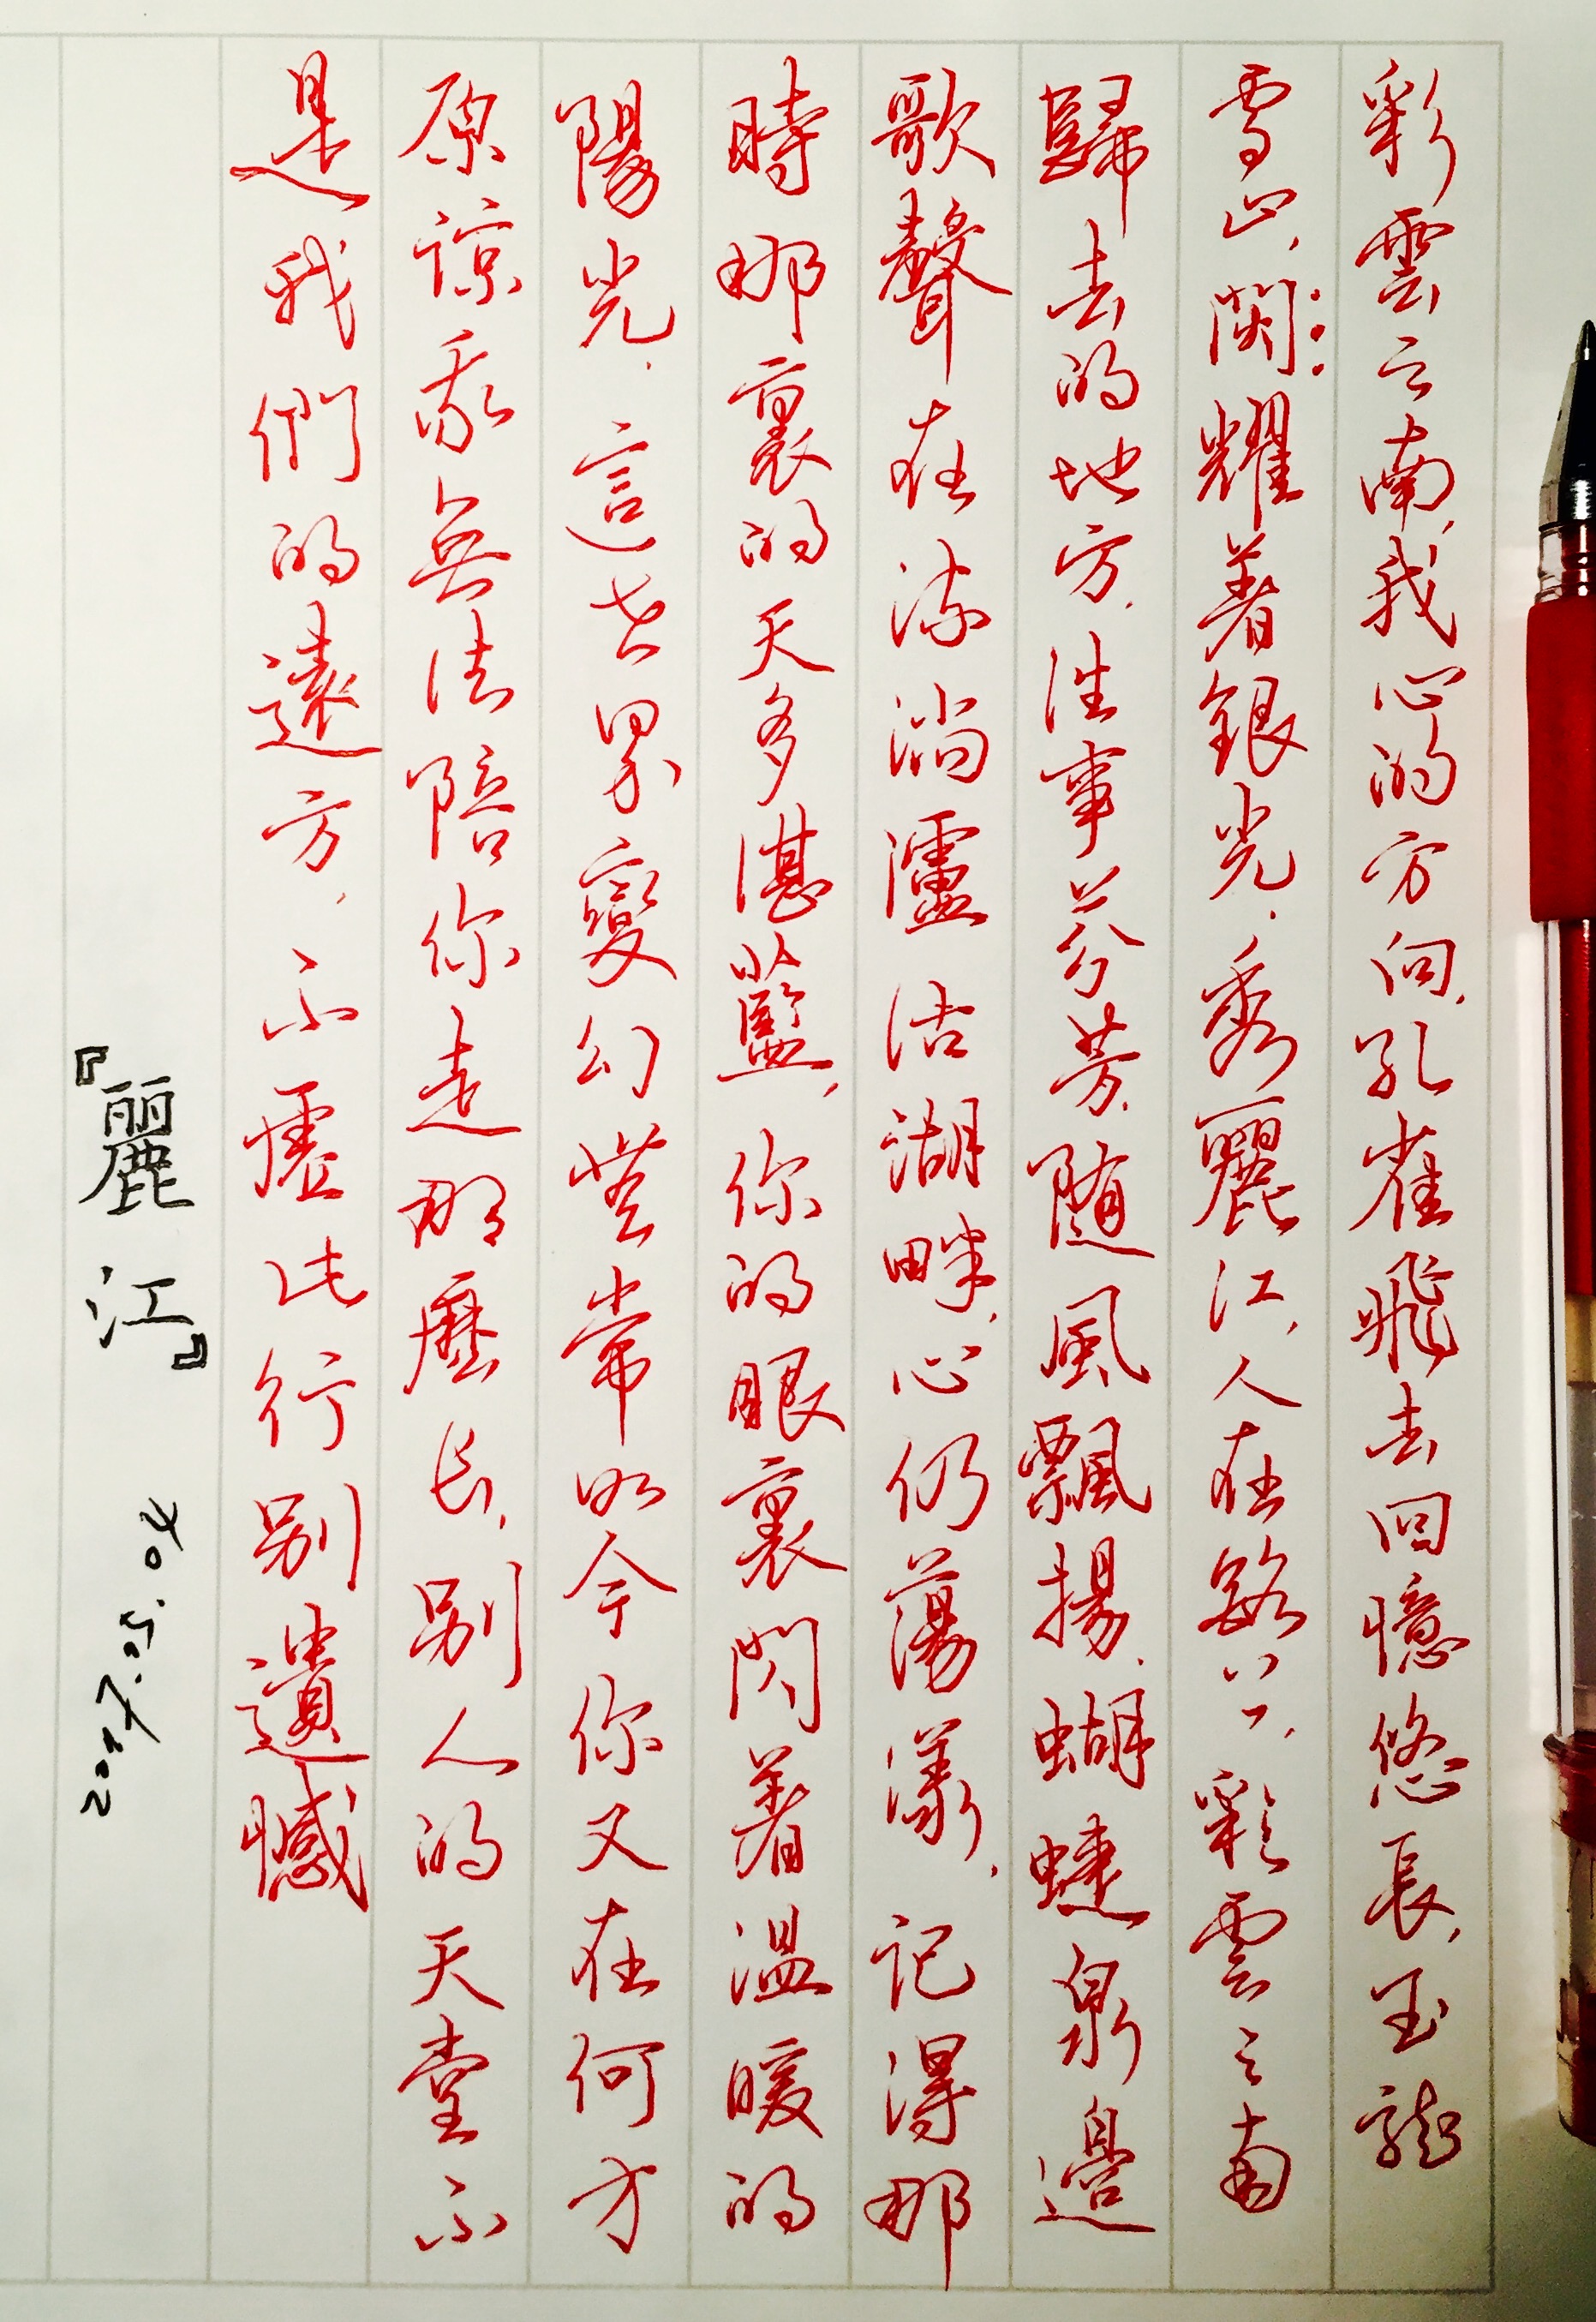 彩雲之南，我心的方向，孔雀飛去回憶悠長，玉龍
雪山，閃耀著銀光，秀麗江，人在路上，彩雲之南
歸去的地方，往事芬芳，随風飄揚，蝴蝶泉邊
歌聲在流淌瀘沽湖畔，心仍蕩漾，记得那
時那裏的天多湛藍，你的眼裏閃著溫暖的
陽光，這世界變幻無常如今你又在何方
原諒我無法陪你走那麼长，别人的天堂不
是我們的遠方，不虛此行别遺憾
『麗江』 2017.05.04